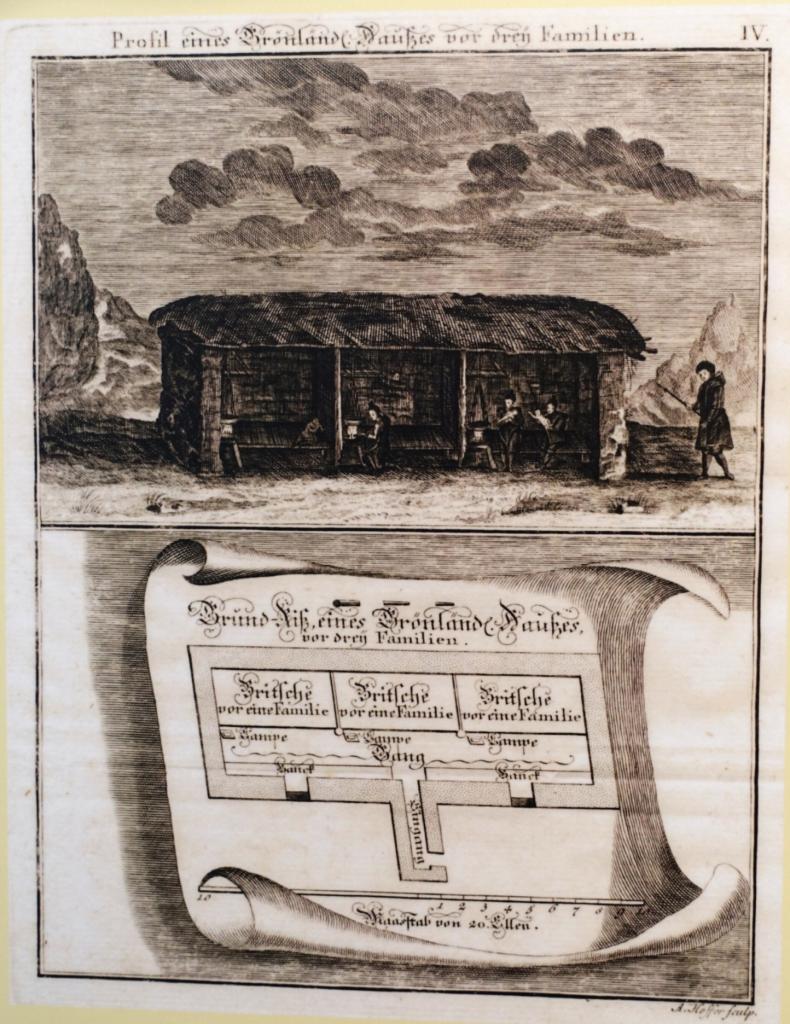 Profil eines Grönländ. Haußes vor dreÿ Familien.
IV.
Grund-Riß, eines Grönländ. Haußes,
vor dreÿ Familien.
Britsche
vor eine Familie
Britsche
vor eine Familie
Britsche
vor eine Familie
Lampe
Lampe
Lampe
Gang
Banck
Banck
Eingang
10
1 2 3 4 5 6 7 8 9 10
Maasstab von 20. Ellen.
A. Hoffer sculp.